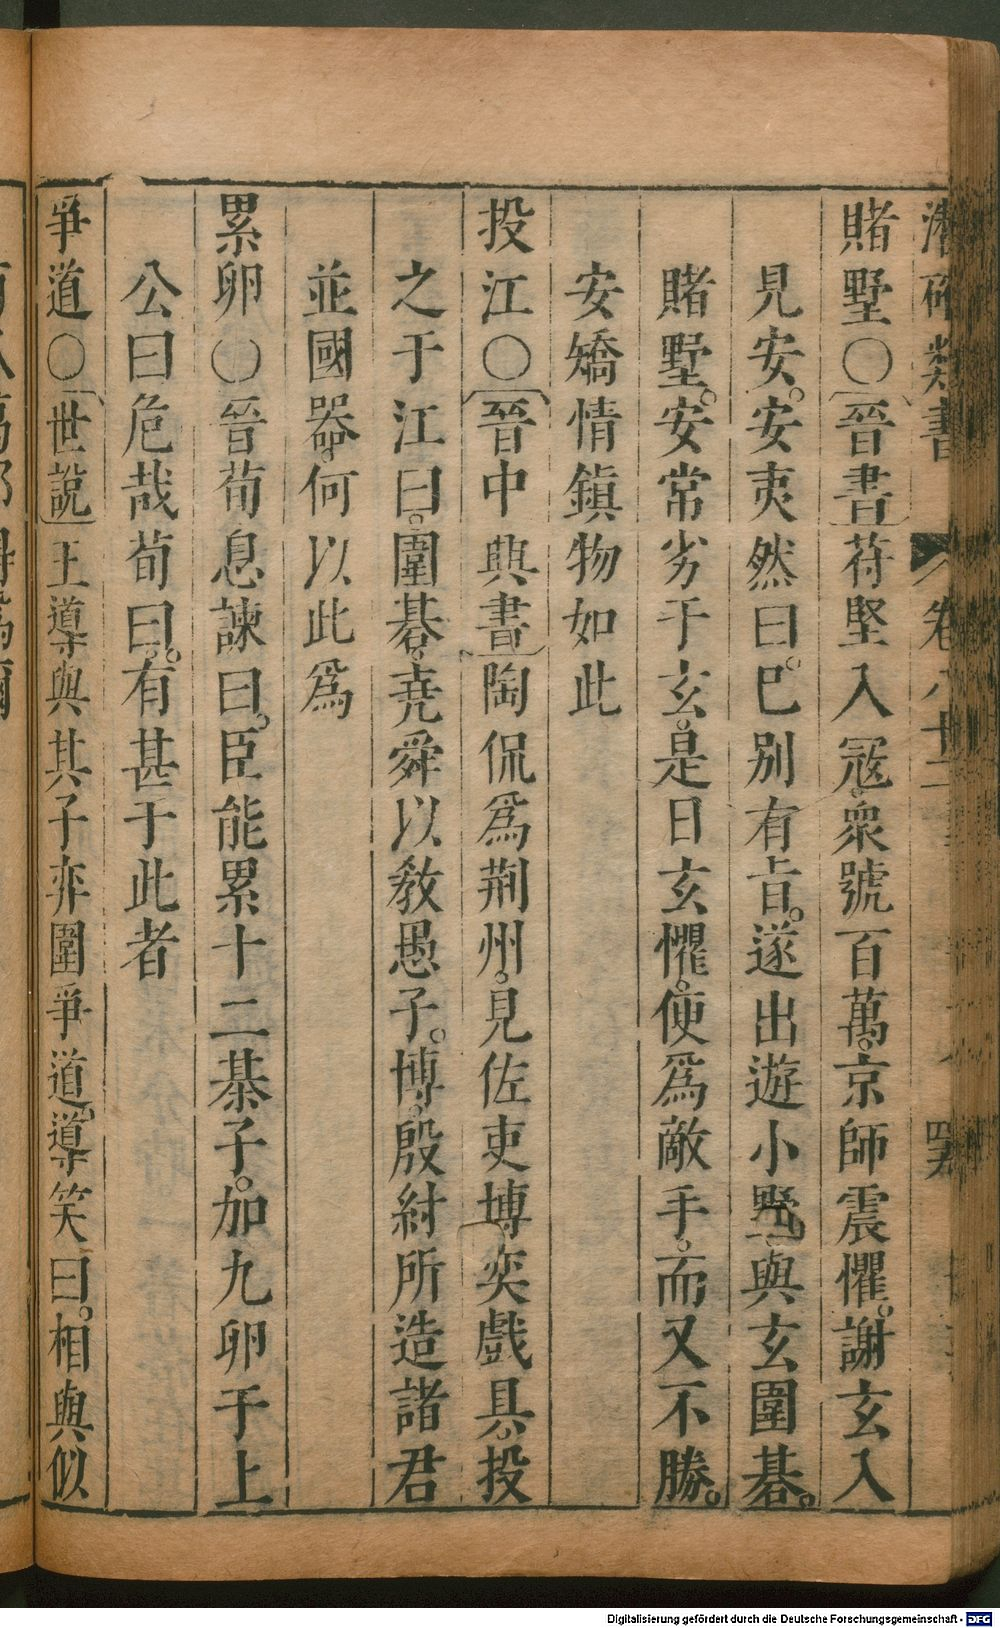 潛確類書 卷八十二 四六
賭墅○晉書苻堅入冦衆號百萬京師震懼。謝玄入
見安。安夷然曰。已别有旨。遂出遊小墅。與玄圍碁。
賭墅。安常劣于玄。是日玄懼。便爲敵手。而又不勝。
安矯情鎮物如此
投江○晉中興書陶侃爲荆州。見佐吏博奕戲具。投
之于江曰。圍碁。堯舜以教愚子。博。殷紂所造諸君
並國器。何以此爲
累卵○晉荀息諫曰。臣能累十二棊子。加九卵于上
公曰危哉荀曰。有甚于此者
爭道○世說王導與其子弈圍爭道。導笑曰。相與似
Digitalisierung gefördert durch die Deutsche Forschungsgemeinschaft - DFG